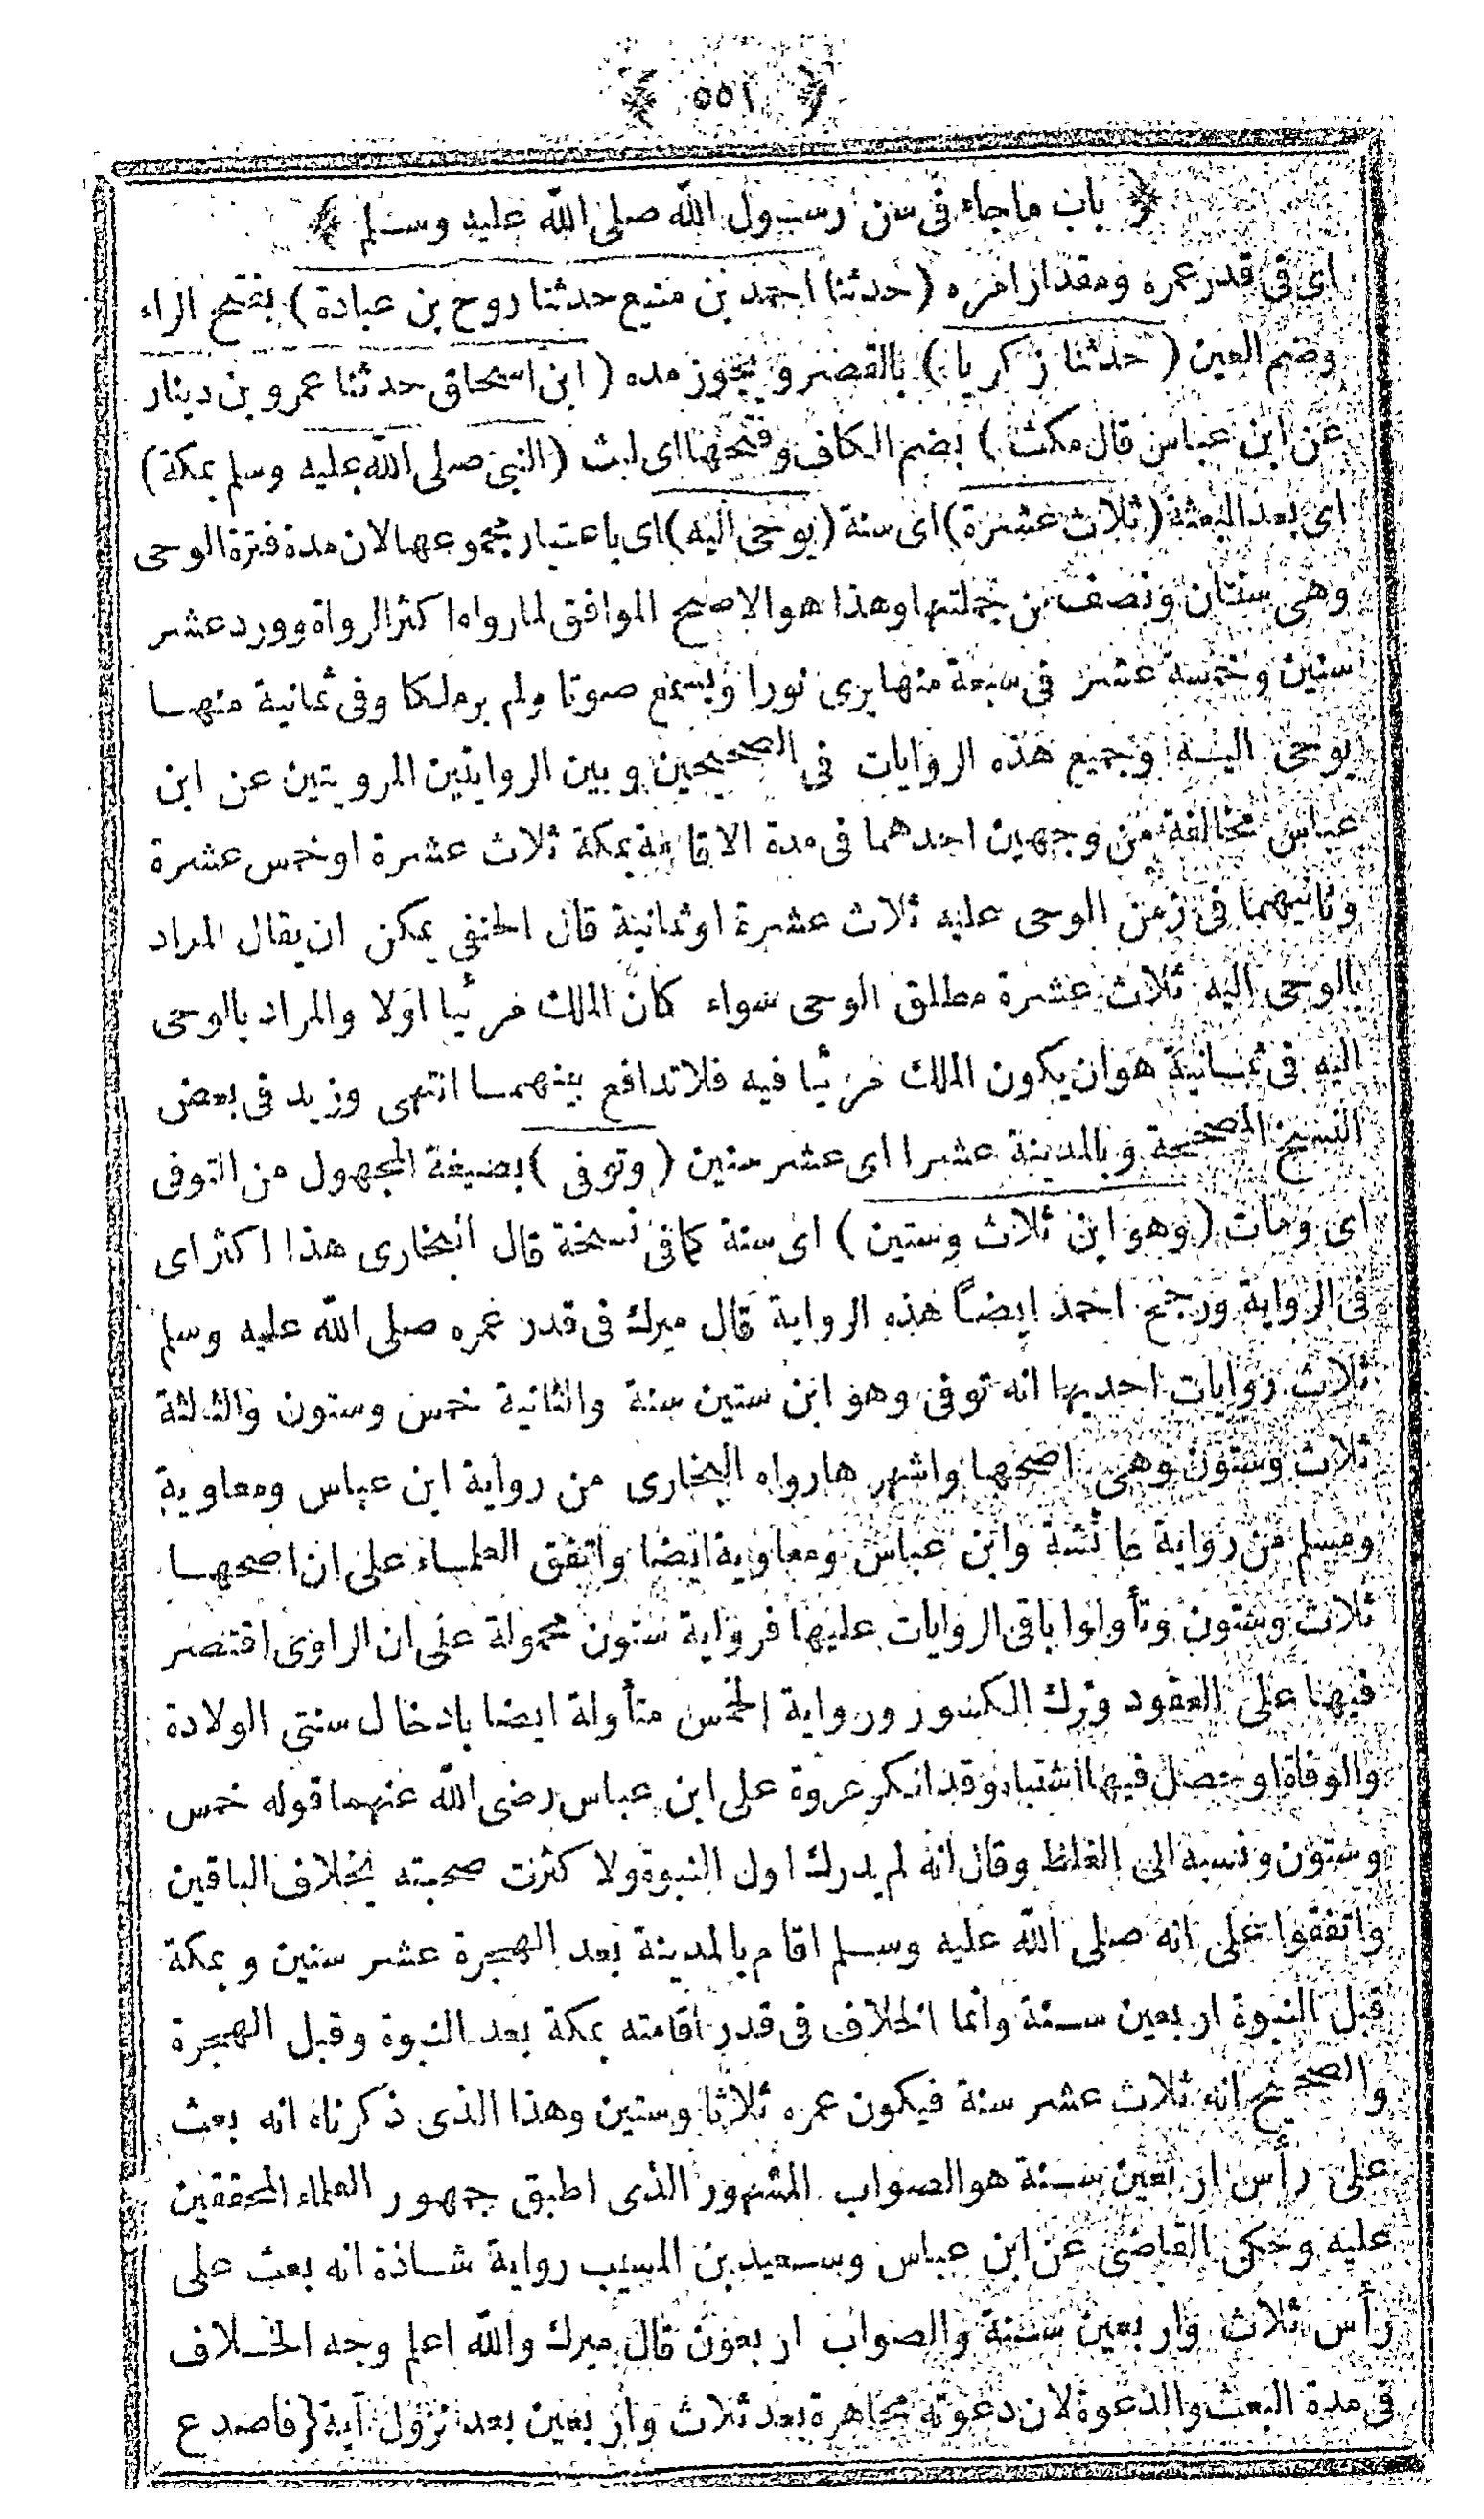 ﴿ ٥٥١ ﴾
﴿ باب ماجاء فى سن رسول الله صلى الله عليه وسلم ﴾
اى فى قدر عمره ومقدار امره (حدثنا احمد بن منيع حدثنا روح بن عبادة) بفتح الراء
وضم العين (حدثنا زكريا) بالقصر ويجوز مده (ابن اسحاق حدثنا عمرو بن دينار
عن ابن عباس قال مكث) بضم الكاف وفتحها اى لبث (النبى صلى الله عليه وسلم بمكة)
اى بعد البعثة (ثلاث عشرة) اى سنة (يوحى اليه) اى باعتبار مجموعها لان مدة فترة الوحى
وهى سنتان ونصف من جملتها وهذا هو الاصح الموافق لما رواه اكثر الرواة وورد عشر
سنين وخمسة عشر فى سبعة منها يرى نورا ويسمع صوتا ولم ير ملكا وفى ثمانية منها
يوحى اليه وجميع هذه الروايات فى الصحيحين وبين الروايتين المرويتين عن ابن
عباس مخالفة من وجهين احدهما فى مدة الاقامة بمكة ثلاث عشرة او خمس عشرة
وثانيهما فى زمن الوحى عليه ثلاث عشرة او ثمانية قال الحنفى يمكن ان يقال المراد
بالوحى اليه ثلاث عشرة مطلق الوحى سواء كان الملك مرئيا اولا والمراد بالوحى
اليه فى ثمانية هو ان يكون الملك مرئيا فيه فلا تدافع بينهما انتهى وزيد فى بعض
النسخ المصححة وبالمدينة عشرا اى عشر سنين (وتوفى) بصيغة المجهول من التوفى
اى ومات (وهو ابن ثلاث وستين) اى سنة كما فى نسخة قال البخارى هذا اكثر اى
فى الرواية ورجح احمد ايضاً هذه الرواية قال ميرك فى قدر عمره صلى الله عليه وسلم
ثلاث روايات احديها انه توفى وهو ابن ستين سنة والثانية خمس وستون والثالثة
ثلاث وستون وهى اصحها واشهرها رواه البخارى من رواية ابن عباس ومعاوية
ومسلم من رواية عائشة وابن عباس ومعاوية ايضا واتفق العلماء على ان اصحها
ثلاث وستون وتأولوا باقى الروايات عليها فرواية ستون محمولة على ان الراوى اقتصر
فيها على العقود وترك الكسور ورواية الخمس متأولة ايضا بادخال سنتى الولادة
والوفاة او حصل فيها اشتباه وقد انكر عروة على ابن عباس رضى الله عنهما قوله خمس
وستون ونسبه الى الغلط وقال انه لم يدرك اول النبوة ولا كثرت صحبته بخلاف الباقين
واتفقوا على انه صلى الله عليه وسلم اقام بالمدينة بعد الهجرة عشر سنين وبمكة
قبل النبوة اربعين سنة وانما الخلاف فى قدر اقامته بمكة بعد النبوة وقبل الهجرة
والصحيح انه ثلاث عشر سنة فيكون عمره ثلاثا وستين وهذا الذى ذكرناه انه بعث
على رأس اربعين سنة هو الصواب المشهور الذى اطبق جمهور العلماء المحققين
عليه وحكى القاضى عن ابن عباس وسعيد بن المسيب رواية شاذة انه بعث على
رأس ثلاث واربعين سنة والصواب اربعون قال ميرك والله اعلم وجه الخلاف
فى مدة البعث والدعوة لان دعوته مجاهرة بعد ثلاث واربعين بعد نزول آية {فاصدع